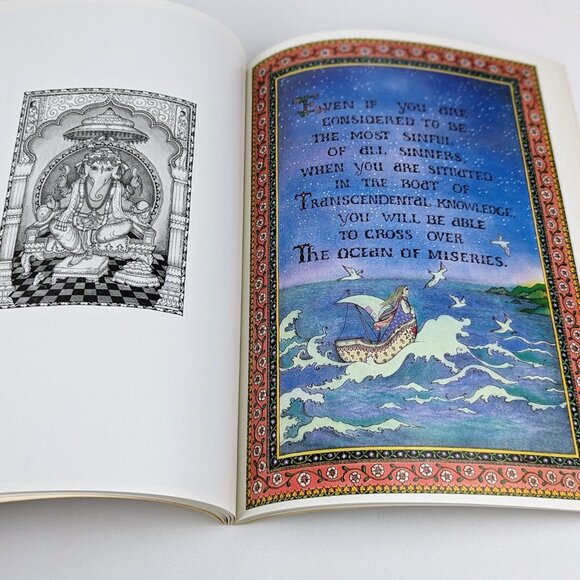 Even if you are
considered to be
the most sinful
of all sinners,
when you are situated
in the boat of
Transcendental knowledge,
you will be able
to cross over
The ocean of miseries.